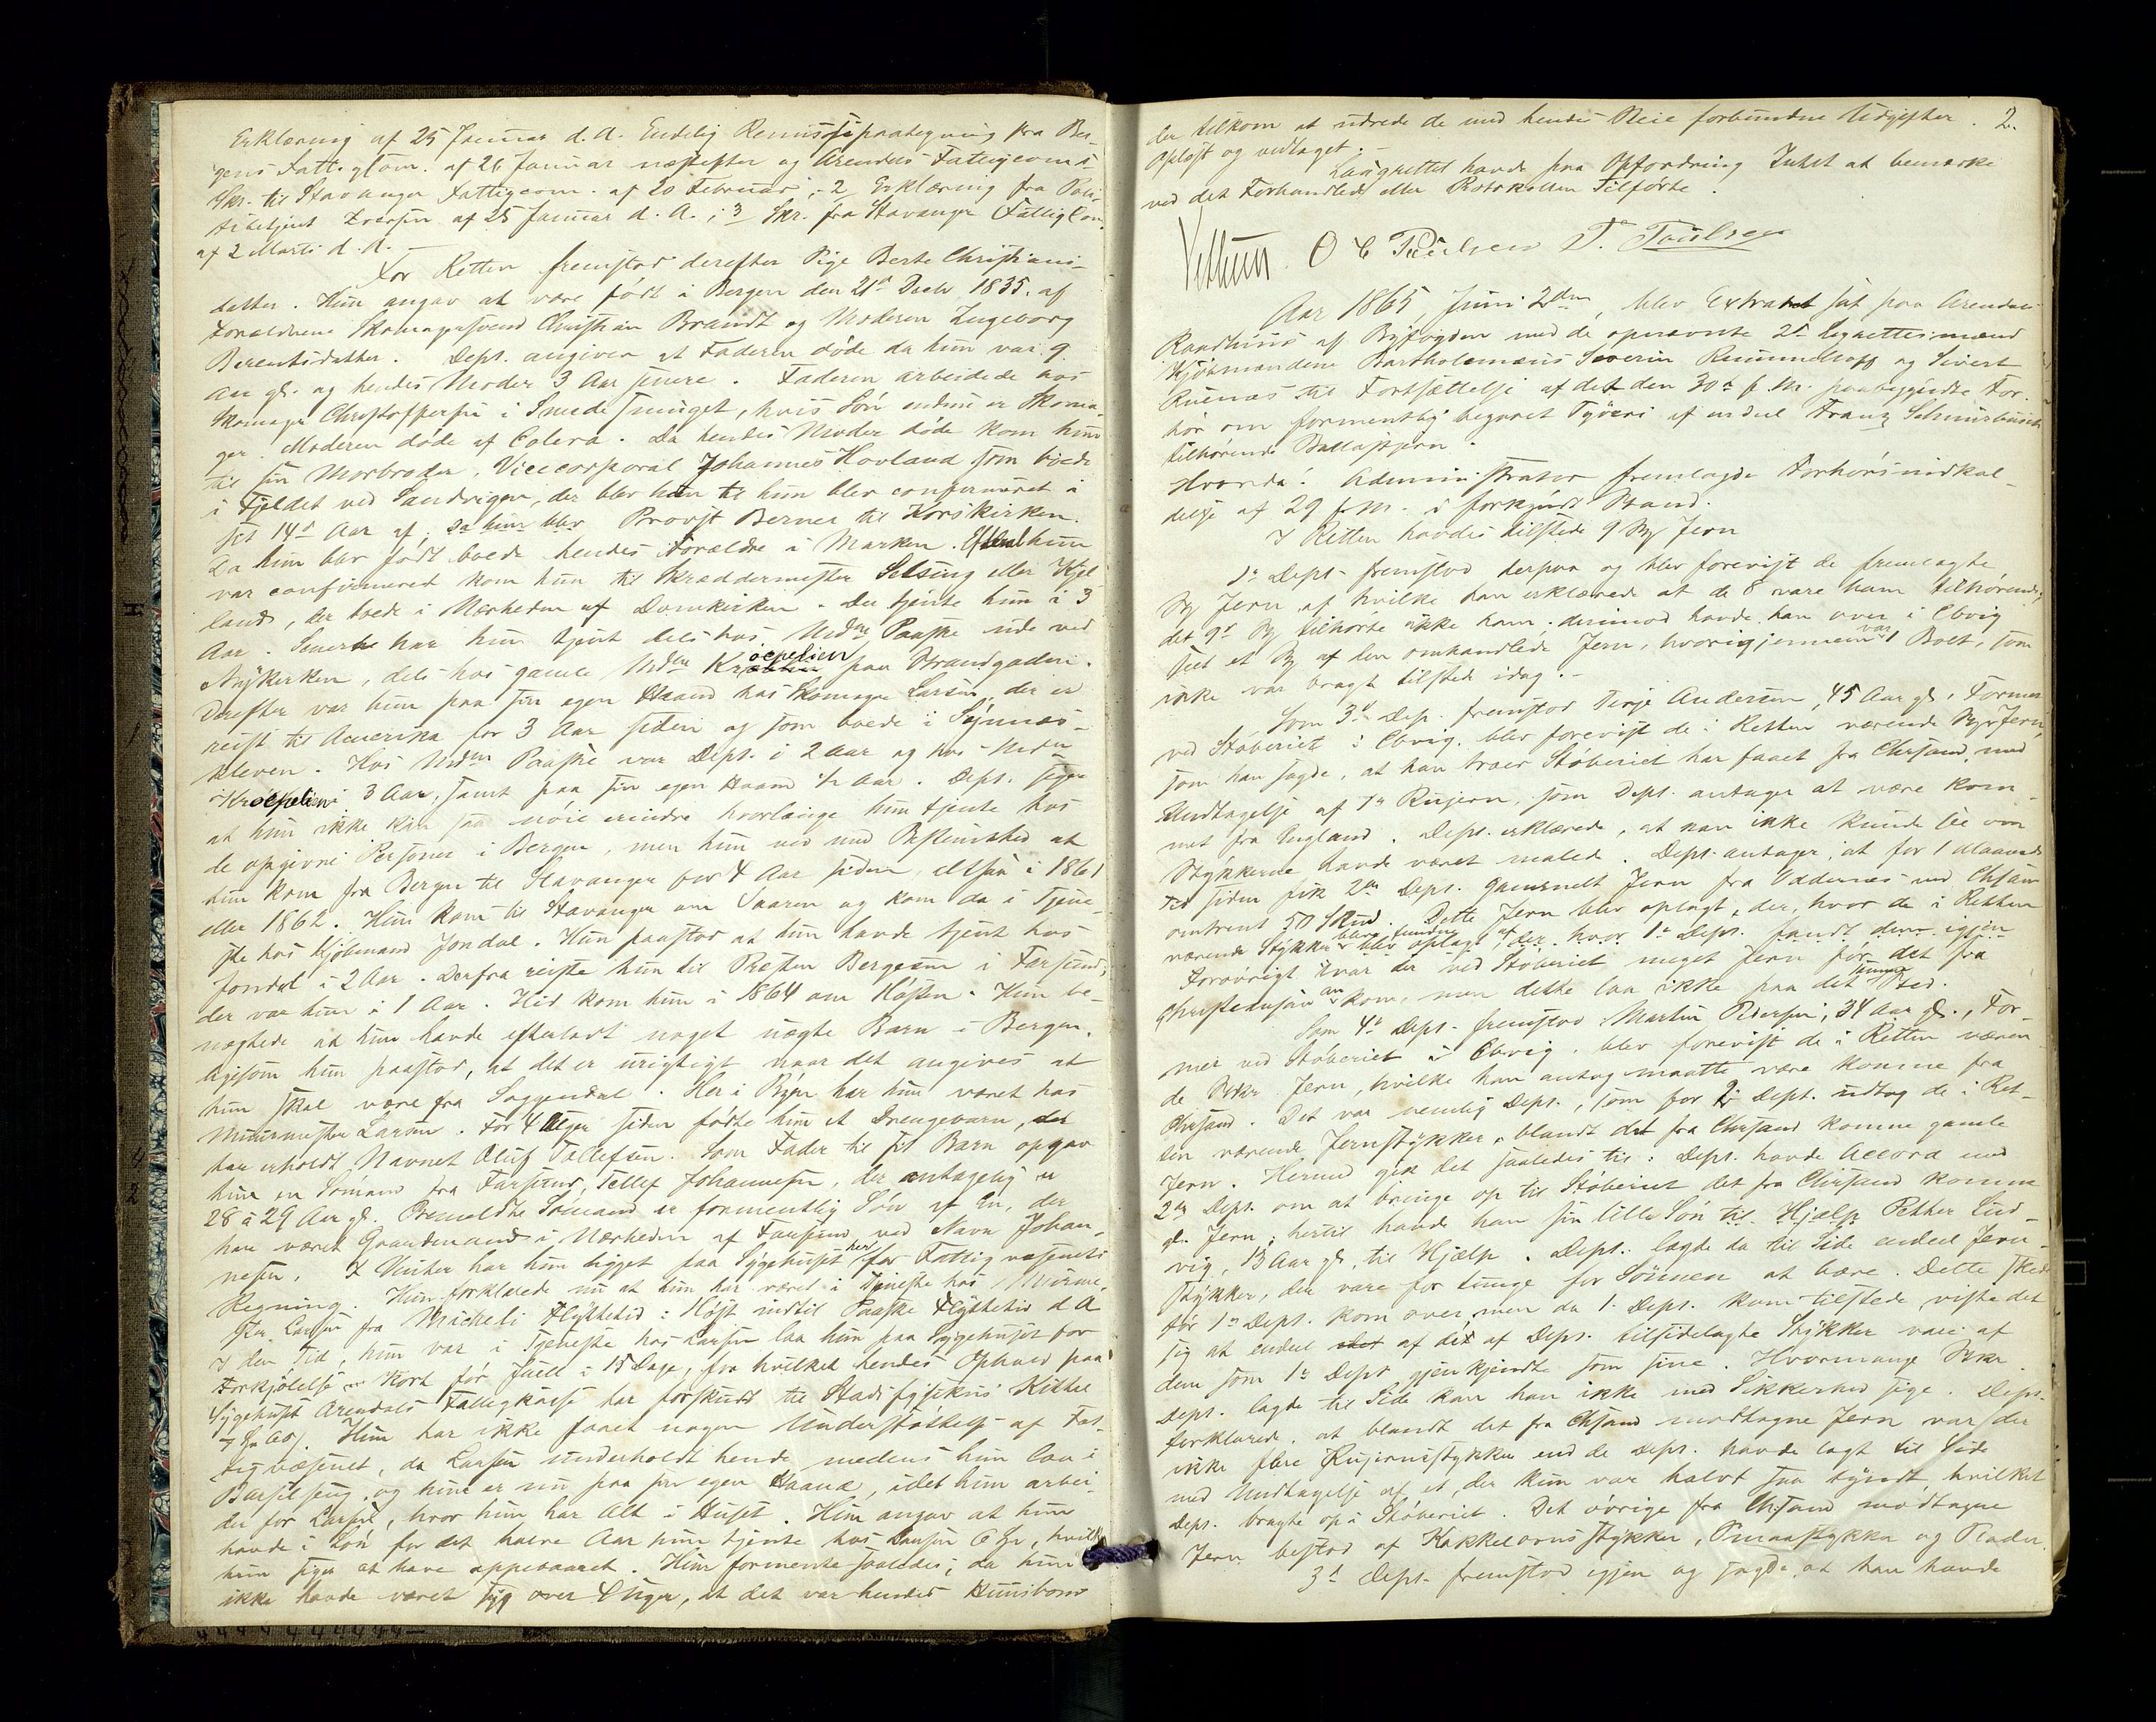 Erklæring af 25 Januar d. A. Endelig Remissepaategning fra Ber-
gens Fattigcom. af 26 Januar næstefter og Arendals Fattigcoms
Skr. til Stavanger Fattigcom. af 20 Februar; 2 Erklæring fra Poli-
tibetjent Iversen af 25 Januar d. A.; 3 Skr. fra Stavanger Fattig Com.
af 2 Marts d. A. —
For Retten fremstod derefter Pige Berte Christians-
datter. Hun angav at være født i Bergen den 21de Decbr 1835. af
Forældrene Skomagersvend Christian Brandt og Moderen Ingeborg
Berentsdatter. Dept. angiver at Faderen døde da hun var 9
Aar gl. og hendes Moder 3 Aar senere. Faderen arbeidede hos
Skomager Christoffersen i Smedesmuget, hvis Søn endnu er Skoma-
ger. Moderen døde af Colera. Da hendes Moder døde kom hun
til sin Morbroder, Vicecorporal Johannes Hovland som boede
i Fjeldet ved Sandvigen, der blev hun til hun blev confirmeret i
sit 14de Aar af, da hun blev Provst Berner til Korskirken.
Da hun blev født boede hendes Forældre i Marken. Efterat hun
var confirmeret kom hun til Skræddermester Selsing eller Kjel-
land, der boede i Nærheden af Domkirken. Der tjente hun i 3
Aar. Senere har hun tjent dels hos Mdme Paaske ude ved
Nykirken, dels hos gamle Mdme Kroepelien paa Strandgaden.
Derefter var hun paa sin egen Haand hos Skomager Larsen, der er
reist til Amerika for 3 Aar siden og som boede i Sydnæs-
kleven. Hos Mdme Paaske var Dept. i 2 Aar og hos Mdme
Kroepelien i 3 Aar, samt paa sin egen Haand ½ Aar. Dept. siger
at hun ikke kan saa nøie erindre hvorlænge hun tjente hos
de opgivne Personer i Bergen, men hun ved med Bestemthed at
hun kom fra Bergen til Stavanger for 4 Aar siden, altsaa i 1861
eller 1862. Hun kom til Stavanger om Vaaren og kom da i Tjene-
ste hos Kjøbmand Jondal. Hun paastod at hun havde tjent hos
Jondal i 2 Aar. Derfra reiste hun til Presten Bergesen i Farsund,
der var hun i 1 Aar. Hid kom hun i 1864 om Høsten. Hun be-
nægtede at hun havde efterladt noget uægte Barn i Bergen,
ligesom hun paastod, at det er urigtigt naar det angives at
hun skal være fra Soggendal. Her i Byen har hun været hos
Muurmester Larsen. For 4 Uger siden fødte hun et Drengebarn, der
har erholdt Navnet Oluf Tellefsen. Som Fader til sit Barn opgav
hun en Sømand fra Farsund, Tellef Johannesen, der antagelig er
28 à 29 Aar gl. Bemeldte Sømand er formentlig Søn af En, der
har været Gaardmand i Nærheden af Farsund ved Navn Johan-
nesen. I Vinter har hun ligget paa Sygehuset her for Fattigvæsenets
Regning. Hun forklarede nu at hun har været i Tjeneste hos Muurme-
ster Larsen fra Mickeli Flyttetid i Høst indtil Paaske Flyttetid d. A.
I den Tid, hun var i Tjeneste hos Larsen laa hun paa Sygehuset for
Forkjølelse kort før Juul i 15 Dage, for hvilket hendes Ophold paa
Sygehuset Arendals Fattigkasse har forskudt til Stadsfysikus Kittel
Hun har ikke faaet nogen Understøttelse af Fat-
tigvæsenet, da Larsen underholdt hende medens hun laa i
Barselseng, og hun er nu paa sin egen Haand, idet hun arbei-
der for Larsen, hvor hun har Alt i Huset. Hun angav at hun
havde i Løn for det halve Aar hun tjente hos Larsen 6 Spd, hvilke
hun siger at have oppebaaret. Hun formente saaledes, da hun
ikke havde været syg over 4 Uger, at det var hendes Huusbond
2.
der tilkom at udrede de med hendes Pleie forbundne Udgifter.
Oplæst og vedtaget. —
Laugrettet havde paa Opfordring Intet at bemærke
ved det Forhandlede eller Protokollen Tilførte.
Vethuus O C Paulsen T. Toulsen
Aar 1865, Juni 2den, blev Extraret sat paa Arendals
Raadhuus af Byfogden med de opnævnte 2de Lagrettesmænd
Kjøbmændene Bartholomæus Severin Rummelhoff og Sivert
Ruenæs til Fortsættelse af det den 30te f. M. paabegyndte For-
hør om formentlig begaaet Tyveri af endeel Franz Schnurbusch
tilhørende Ballastjern.
Hvorda: Administrator fremlagde Forhørsindkal-
delse af 29 f. M. i forkyndt Stand.
I Retten havdes tilstede 9 Stkr Jern
1ste Dept. fremstod derpaa og blev forevist de fremlagte
Stkr Jern af hvilke han erklærede at de 8 vare ham tilhørende,
det 9de Stk tilhørte ikke ham, derimod havde han over i Ebvig
seet et Stk af den omhandlede Jern, hvorigjennem var 1 Bolt, som
ikke var bragt tilstede idag. —
Som 3die Dep. fremstod Terje Andersen, 45 Aar gl., Former
ved Støberiet i Ebvig. blev forevist de i Retten værende Stykr Jern,
som han sagde, at han troer Støberiet har faaet fra Chrsand med
Undtagelse af 1 Rujern, som Dept. antager at være kom-
met fra England. Dept. erklærede, at han ikke kunde see om
Stykkerne havde været malede. Dept. antager, at for 1 Maaneds
Tid siden fik 2den Dept. gammelt Jern fra Oddernæs ved Chrsand
omtrent 50 Skud. Dette Jern blev oplagt, der, hvor de i Retten
værende Stykker bleve fundne af 1ste Dept. fandt dem igjen
Forøvrigt var der ved Støberiet meget Jern før det fra
Christianssand ankom, men dette laa ikke paa det samme Sted.
Som 4de Dept. fremstod Martin Pedersen, 34 Aar gl., For-
mer ved Støberiet i Ebvig. blev forevist de i Retten væren-
de Stkr. Jern, hvilke han antog maatte være komne fra
Chrsand. Det var nemlig Dept., som for 2 Dept. udtog de i Ret-
ten værende Jernstykker, blandt det fra Chrsand komne gamle
Jern. Hermed gik det saaledes til: Dept. havde Accord med
2den Dept. om at bringe op til Støberiet det fra Chrsand komne
gl. Jern; hertil havde han sin lille Søn til Hjælp Petter Lud-
vig, 13 Aar gl., til Hjælp. Dept. lagde da til Side endeel Jern-
stykker, der vare for tunge for Sønnen at bære. Dette skede
før 1ste Dept. kom over, men da 1. Dept. kom tilstede, viste det
sig at endeel af det af Dept. tilsidelagte Stykker vare af
dem som 1ste Dept gjenkjendte som sine. Hvormange Stkr.
Dept. lagde til Side kan han ikke med Sikkerhed sige. Dept.
forklarede, at blandt det fra Chrsand modtagne Jern var der
ikke flere Rujernsstykker end de Dept. havde lagt til Side
med Undtagelse af et, der kun var halvt saa tyndt, hvilket
Dept. bragte op i Støberiet. Det øvrige fra Chrsand modtagne
Jern bestod af Kakkelovnsstykker, Smaastykker og Plader.
3die Dept. fremstod igjen og sagde, at han havde